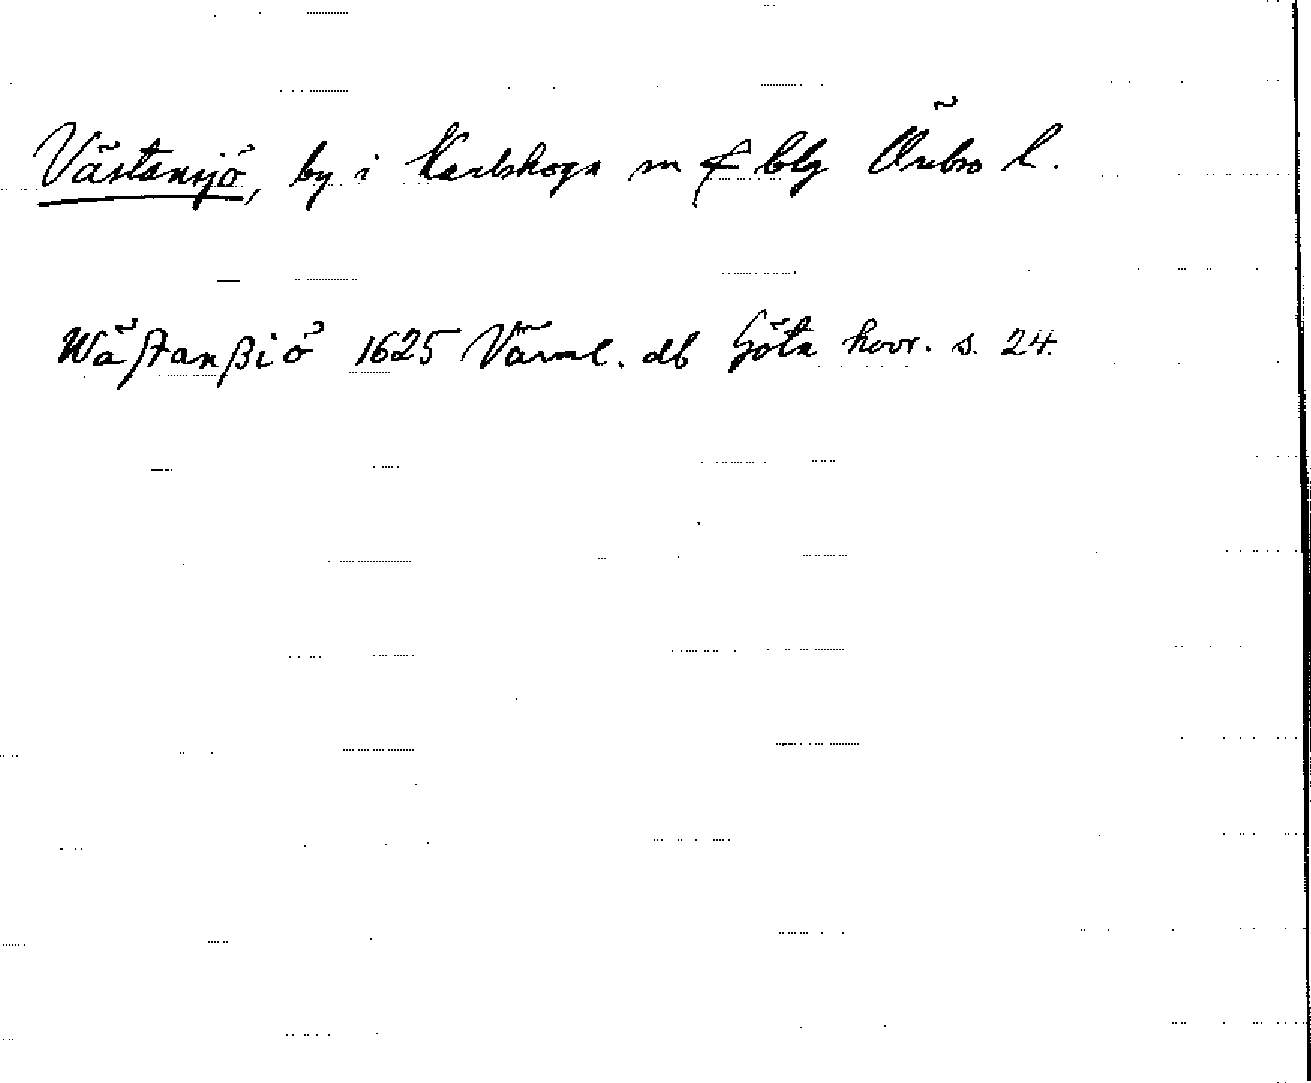 Västansjö, by i Karlskoga sn & blg Örebro l.
Wästanßiö 1625 Värml. db Göta hovr. s. 24.